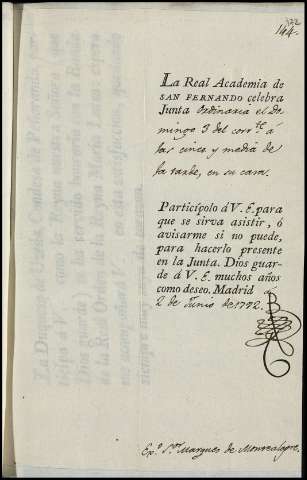 144.
La Real Academia de
SAN FERNANDO celebra
Junta Ordinaria el Do
mingo 3 del corr.te á
las cinco y media de
la tarde, en su casa.
Participolo á V. E. para
que se sirva asistir, ó
avisarme si no puede,
para hacerlo presente
en la Junta. Dios guar-
de á V. E. muchos años
como deseo. Madrid á
2 de Junio de 1792.
Ex.o S.or Marques de Monrealegre.